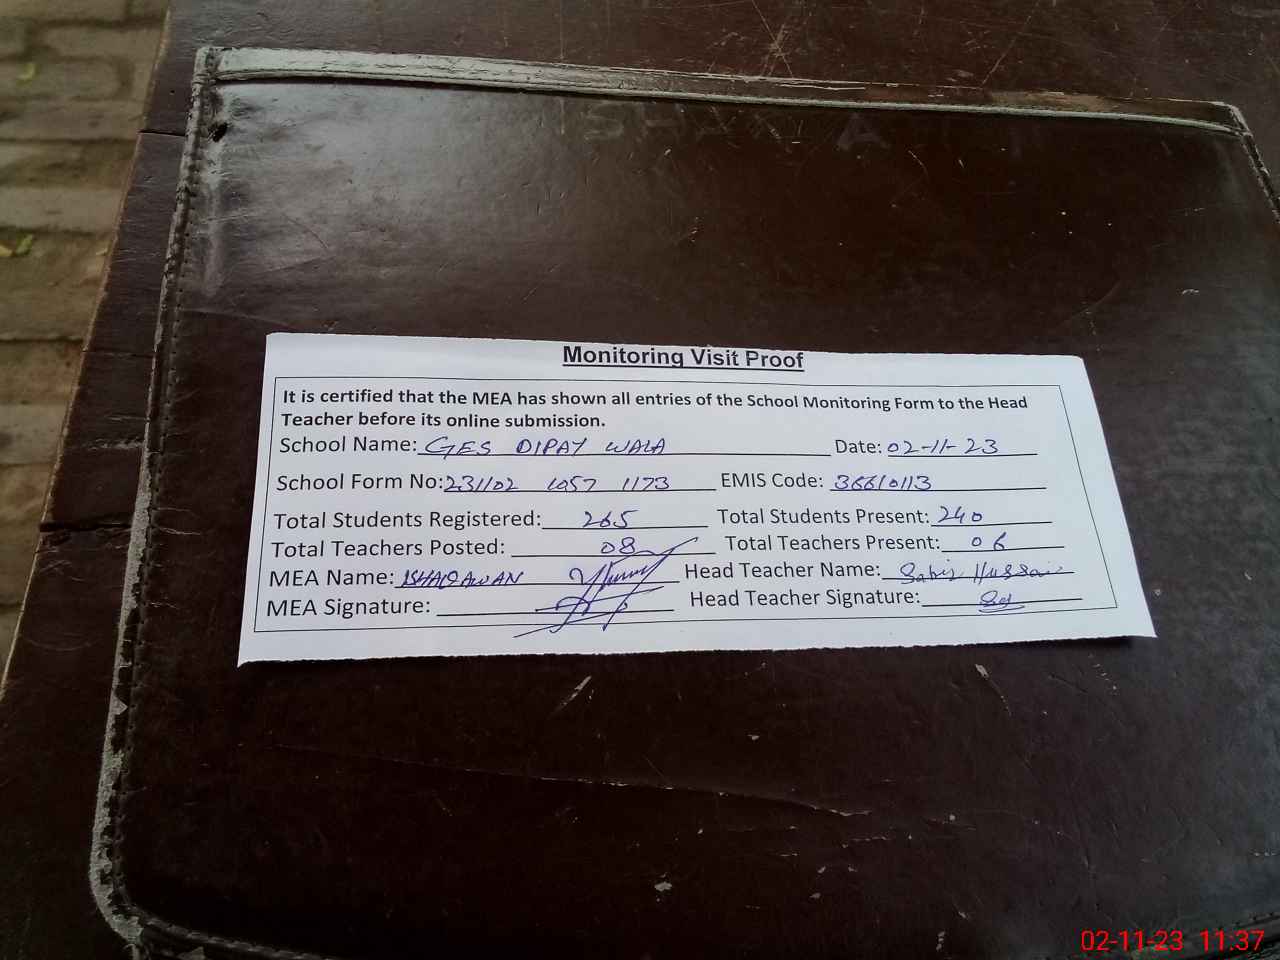 Monitoring Visit Proof
It is certified that the MEA has shown all entries of the School Monitoring Form to the Head
Teacher before its online submission.
School Name: GES DIPAY WALA Date: 02-11-23
School Form No: 231102 1057 1173 EMIS Code: 36610113
Total Students Registered: 265 Total Students Present: 240
Total Teachers Posted: 08 Total Teachers Present: 06
MEA Name: ISHAQ AWAN Head Teacher Name: Sabir Hussain
MEA Signature: Head Teacher Signature:
02-11-23 11:37